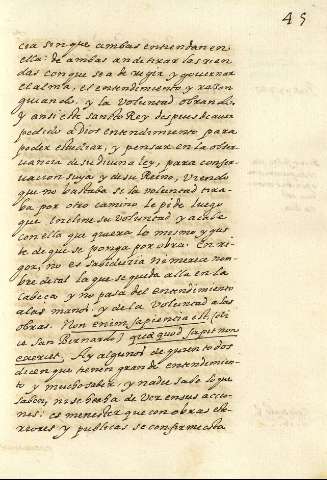 45
cea son que ambas entiendan en
ella: de ambas an de tirar las rien
das con que se a de regir, y governar
el alma, el entendimiento y razon
guiando, y la voluntad obrando,
y ansi este sancto Rey despues de aver
pedido a Dios entendimiento para
poder, y pensar en la obser
vancia de su divina ley, para conser
vacion suya y de su Reino, viendo
que no bastaba si la voluntad tira
ba por otro camino le pide luego
que incline su voluntad y acabe
con ella que quiera lo mismo y gus
te de que se ponga por obra. En ri
gor, no es sabiduria ni merece nom
bre de tal la que se queda alla en la
cabeça y no pasa del entendimiento
a las manos, y de la voluntad a las
obras. Non enim sapiencia est (di
ce San Bernardo) quia quod sapit non
exercet. Ay algunos de quien todos
dicen que tienen grande entendimien
to y mucho saber, y nadie sabe lo que
saben, ni se herha de ver en sus accio
nes: es menester que con obras este
riores y publicas se confirme esta